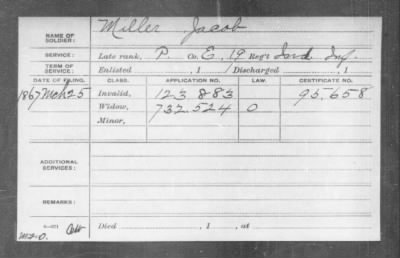 NAME OF SOLDIER: Miller Jacob
SERVICE: Late rank, P. Co. E, 19 Reg't Ind. Inf.
TERM OF SERVICE: Enlisted , 1 Discharged , 1
DATE OF FILING. CLASS. APPLICATION NO. LAW. CERTIFICATE NO.
1867 Mch 25 Invalid, 123 883 95.658
Widow, 732.524 O
Minor,
ADDITIONAL SERVICES:
REMARKS:
Died , 1 , at